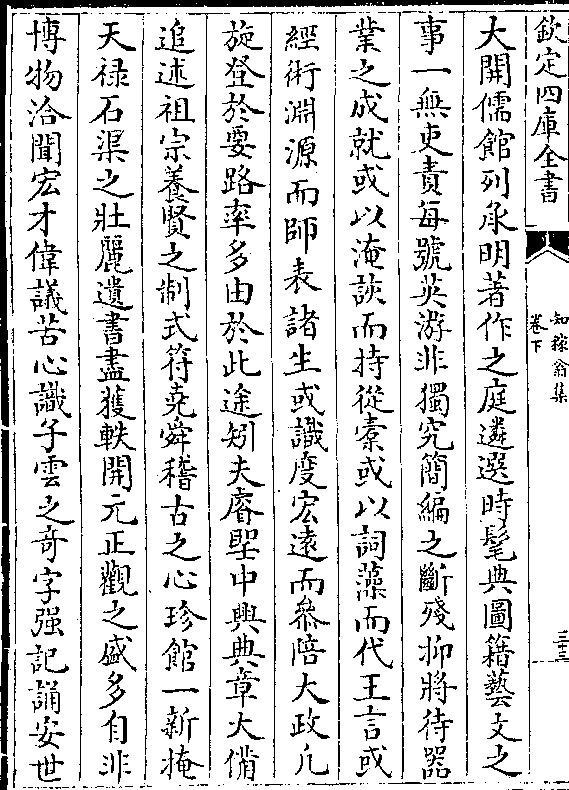 欽定四庫全書
知稼翁集
卷下
三十三
大開儒館列承明著作之庭遴選時髦典圖籍藝文之
事一無吏責每號英游非獨究簡編之斷殘抑將待器
業之成就或以淹該而持從橐或以詞藻而代王言或
經術淵源而師表諸生或識度宏遠而叅陪大政凡
旋登於要路率多由於此途矧夫睿聖中興典章大備
追述祖宗養賢之制式符堯舜稽古之心珍館一新掩
天禄石渠之壯麗遺書盡獲軼開元正觀之盛多自非
博物洽聞宏才偉議苦心識子雲之竒字强記誦安世